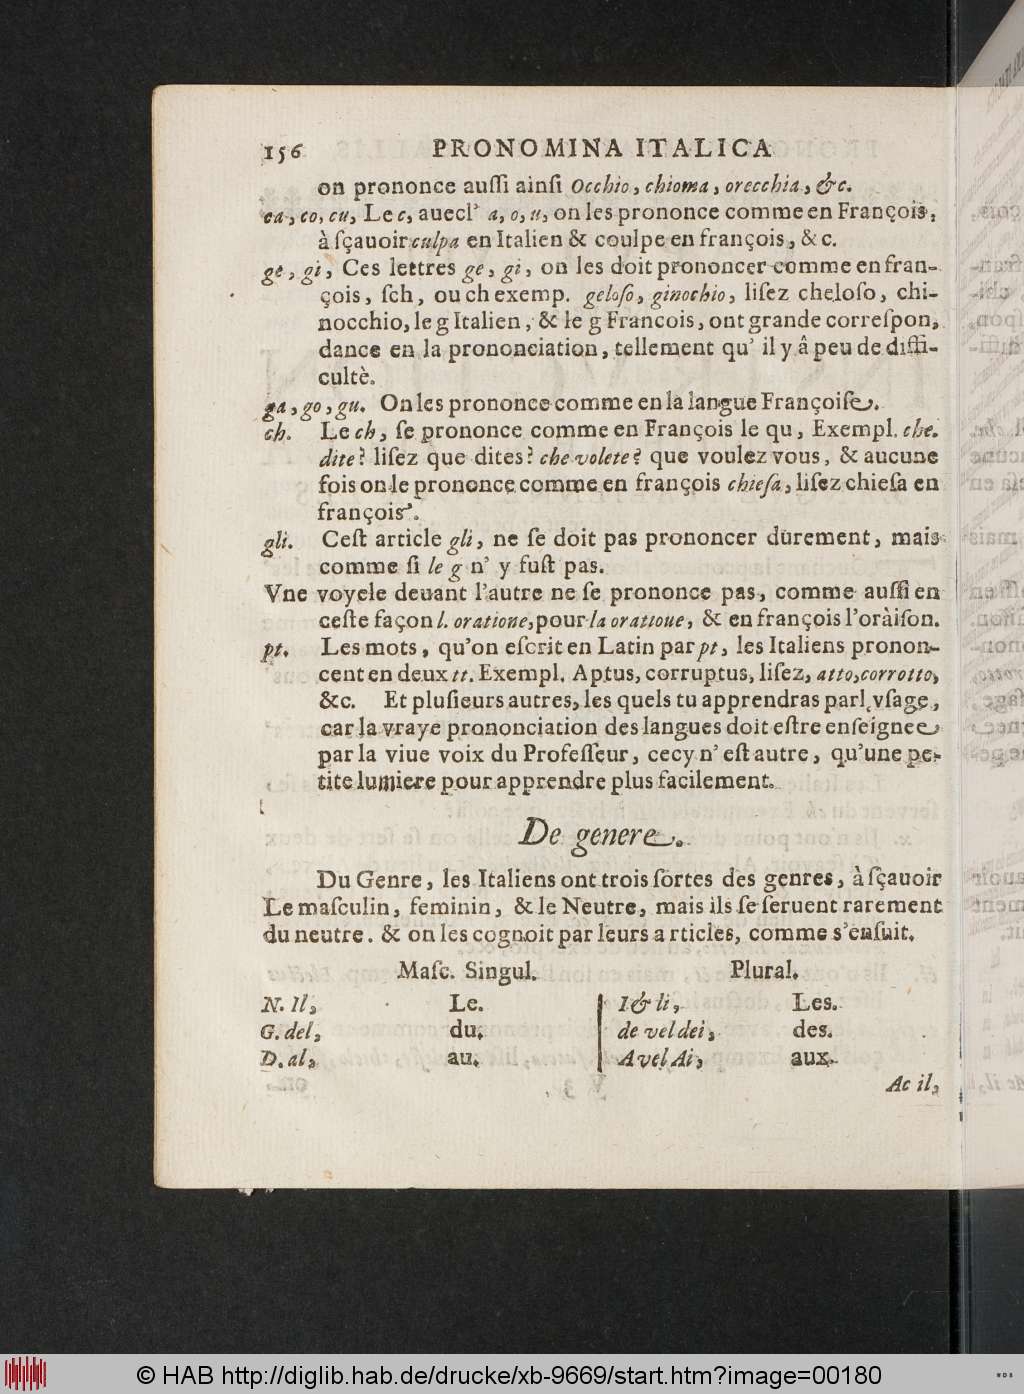 156 PRONOMINA ITALICA
on prononce auſſi ainſi Occhio, chioma, orecchia, &c.
ca, co, cu, Le c, auecl' a, o, u, on les prononce comme en François,
à ſçauoir culpa en Italien & coulpe en françois, & c.
ge, gi, Ces lettres ge, gi, on les doit prononcer comme en fran-
çois, ſch, ou ch exemp. geloſo, ginochio, liſez cheloſo, chi-
nocchio, le g Italien, & le g Francois, ont grande correſpon,
dance en la prononciation, tellement qu' il y â peu de diffi-
cultè.
ga, go, gu. On les prononce comme en la langue Françoiſe.
ch. Le ch, ſe prononce comme en François le qu, Exempl. che.
dite? liſez que dites? che volete? que voulez vous, & aucune
fois on le prononce comme en françois chieſa, liſez chieſa en
françois.
gli. Ceſt article gli, ne ſe doit pas prononcer durement, mais
comme ſi le g n' y fuſt pas.
Vne voyele deuant l'autre ne ſe prononce pas, comme auſſi en
ceſte façon l. oratione, pour la oratioue, & en françois l'oràiſon.
pt. Les mots, qu'on eſcrit en Latin par pt, les Italiens pronon-
cent en deux tt. Exempl. Aptus, corruptus, liſez, atto, corrotto,
&c. Et pluſieurs autres, les quels tu apprendras parl vſage,
car la vraye prononciation des langues doit eſtre enſeignee
par la viue voix du Profeſſeur, cecy n' eſt autre, qu'une pe-
tite lumiere pour apprendre plus facilement.
De genere.
Du Genre, les Italiens ont trois ſortes des genres, à ſçauoir
Le maſculin, feminin, & le Neutre, mais ils ſe ſeruent rarement
du neutre. & on les cognoit par leurs a rticles, comme s'enſuit.
Maſc. Singul. Plural.
N. Il, Le. I & li, Les.
G. del, du, de vel dei, des.
D. al, au, A vel Ai, aux.
Ac il,
© HAB http://diglib.hab.de/drucke/xb-9669/start.htm?image=00180